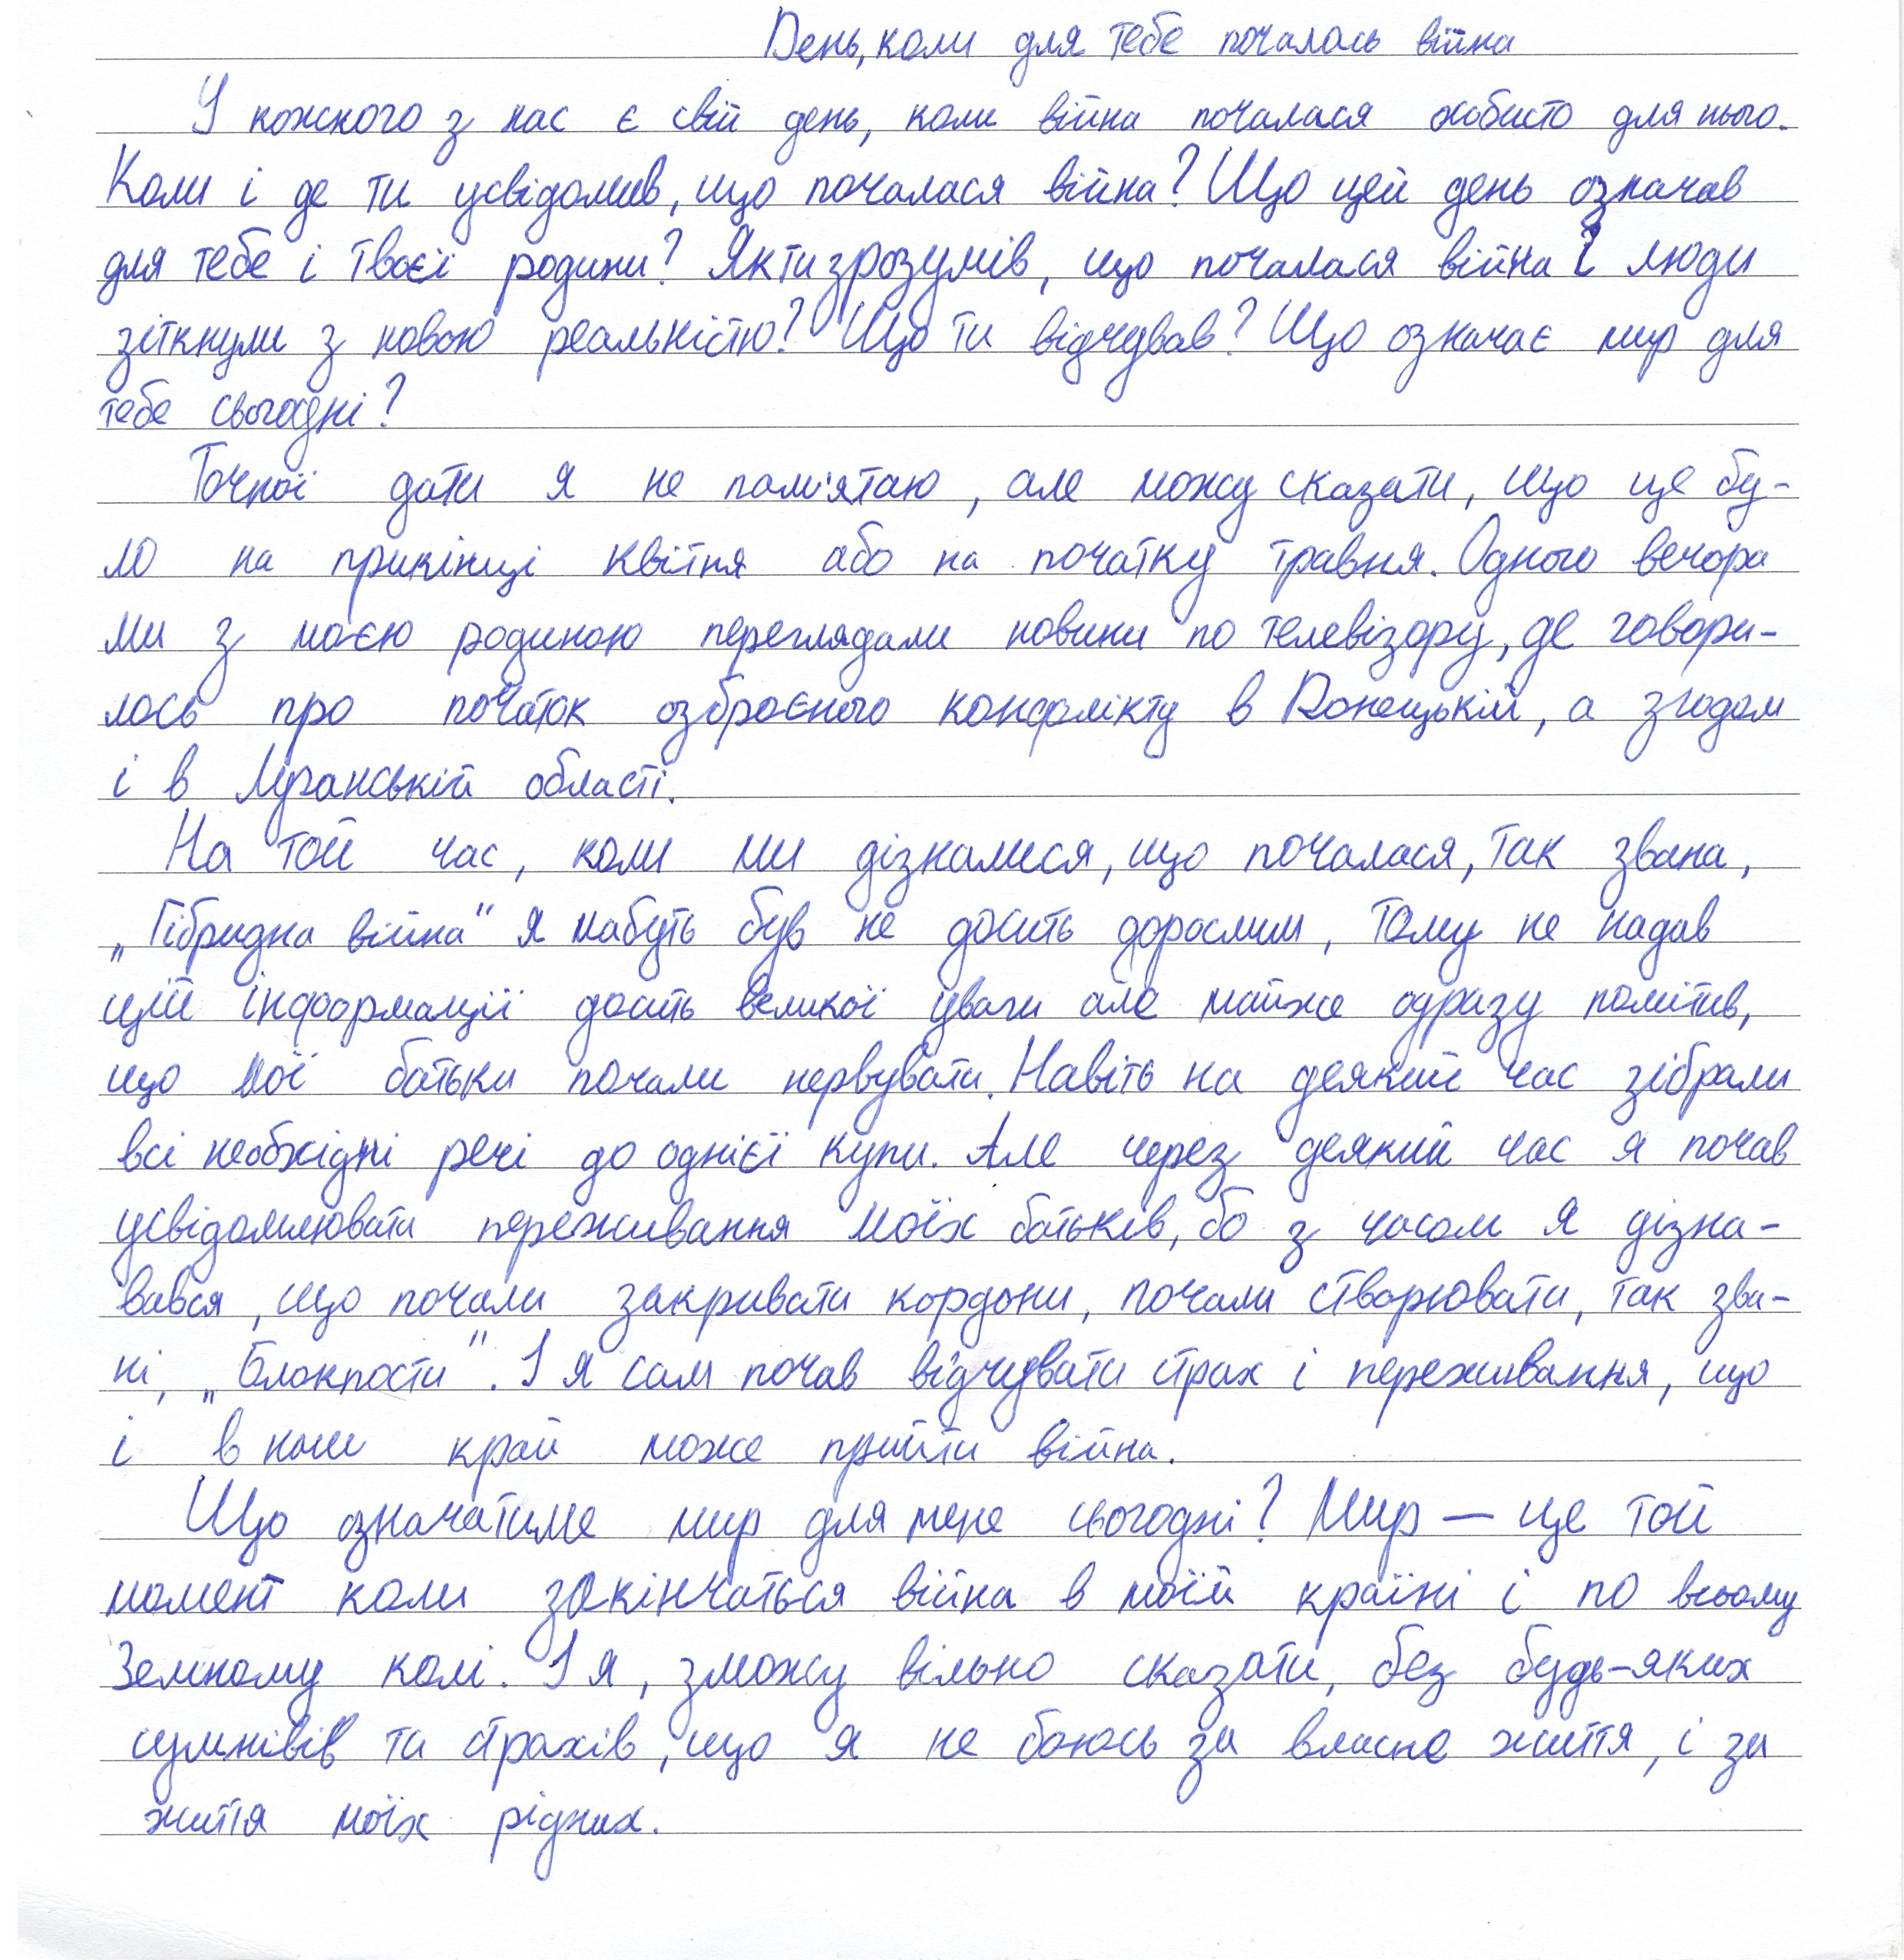 День, коли для тебе почалась війна
У кожного з нас є свій день, коли війна почалася особисто для нього.
Коли і де ти усвідомив, що почалася війна? Що цей день означав
для тебе і твоєї родини? Як ти зрозумів, що почалася війна і люди
зіткнули з новою реальністю? Що ти відчував? Що означає мир для
тебе сьогодні?
Точної дати я не пам'ятаю, але можу сказати, що це бу-
ло на прикінці квітня або на початку травня. Одного вечора
ми з моєю родиною переглядали новини по телевізору, де говори-
лось про початок озброєного конфлікту в Донецькій, а згодом
і в Луганській області.
На той час, коли ми дізналися, що почалася, так звана,
„Гібридна війна" я мабуть був не досить дорослим, тому не надав
цій інформації досить великої уваги але майже одразу помітив,
що мої батьки почали нервувати. Навіть на деякий час зібрали
всі необхідні речі до однієї купи. Але через деякий час я почав
усвідомлювати переживання моїх батьків, бо з часом я дізна-
вався, що почали закривати кордони, почали створювати, так зва-
ні, „Блокпости". І я сам почав відчувати страх і переживання, що
і в наш край може прийти війна.
Що означатиме мир для мене сьогодні? Мир — це той
момент коли закінчаться війна в моїй країні і по всьому
Земному колі. І я, зможу вільно сказати, без будь-яких
сумнівів та страхів, що я не боюсь за власне життя, і за
життя моїх рідних.